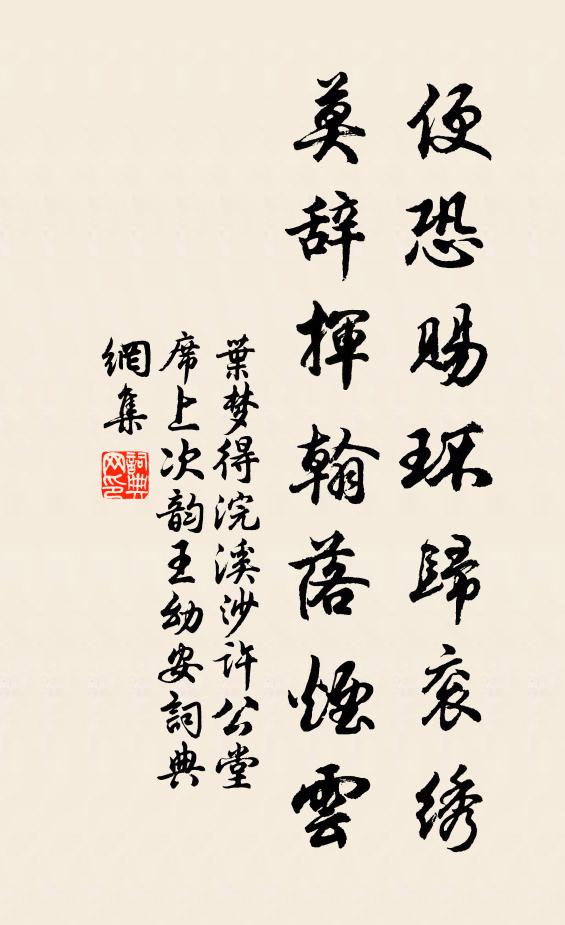 便恐賜環歸衮绣
莫辞揮翰落煙雲
葉梦得浣溪沙許公堂
席上次韵王幼安詞典
網集
詞典
网印